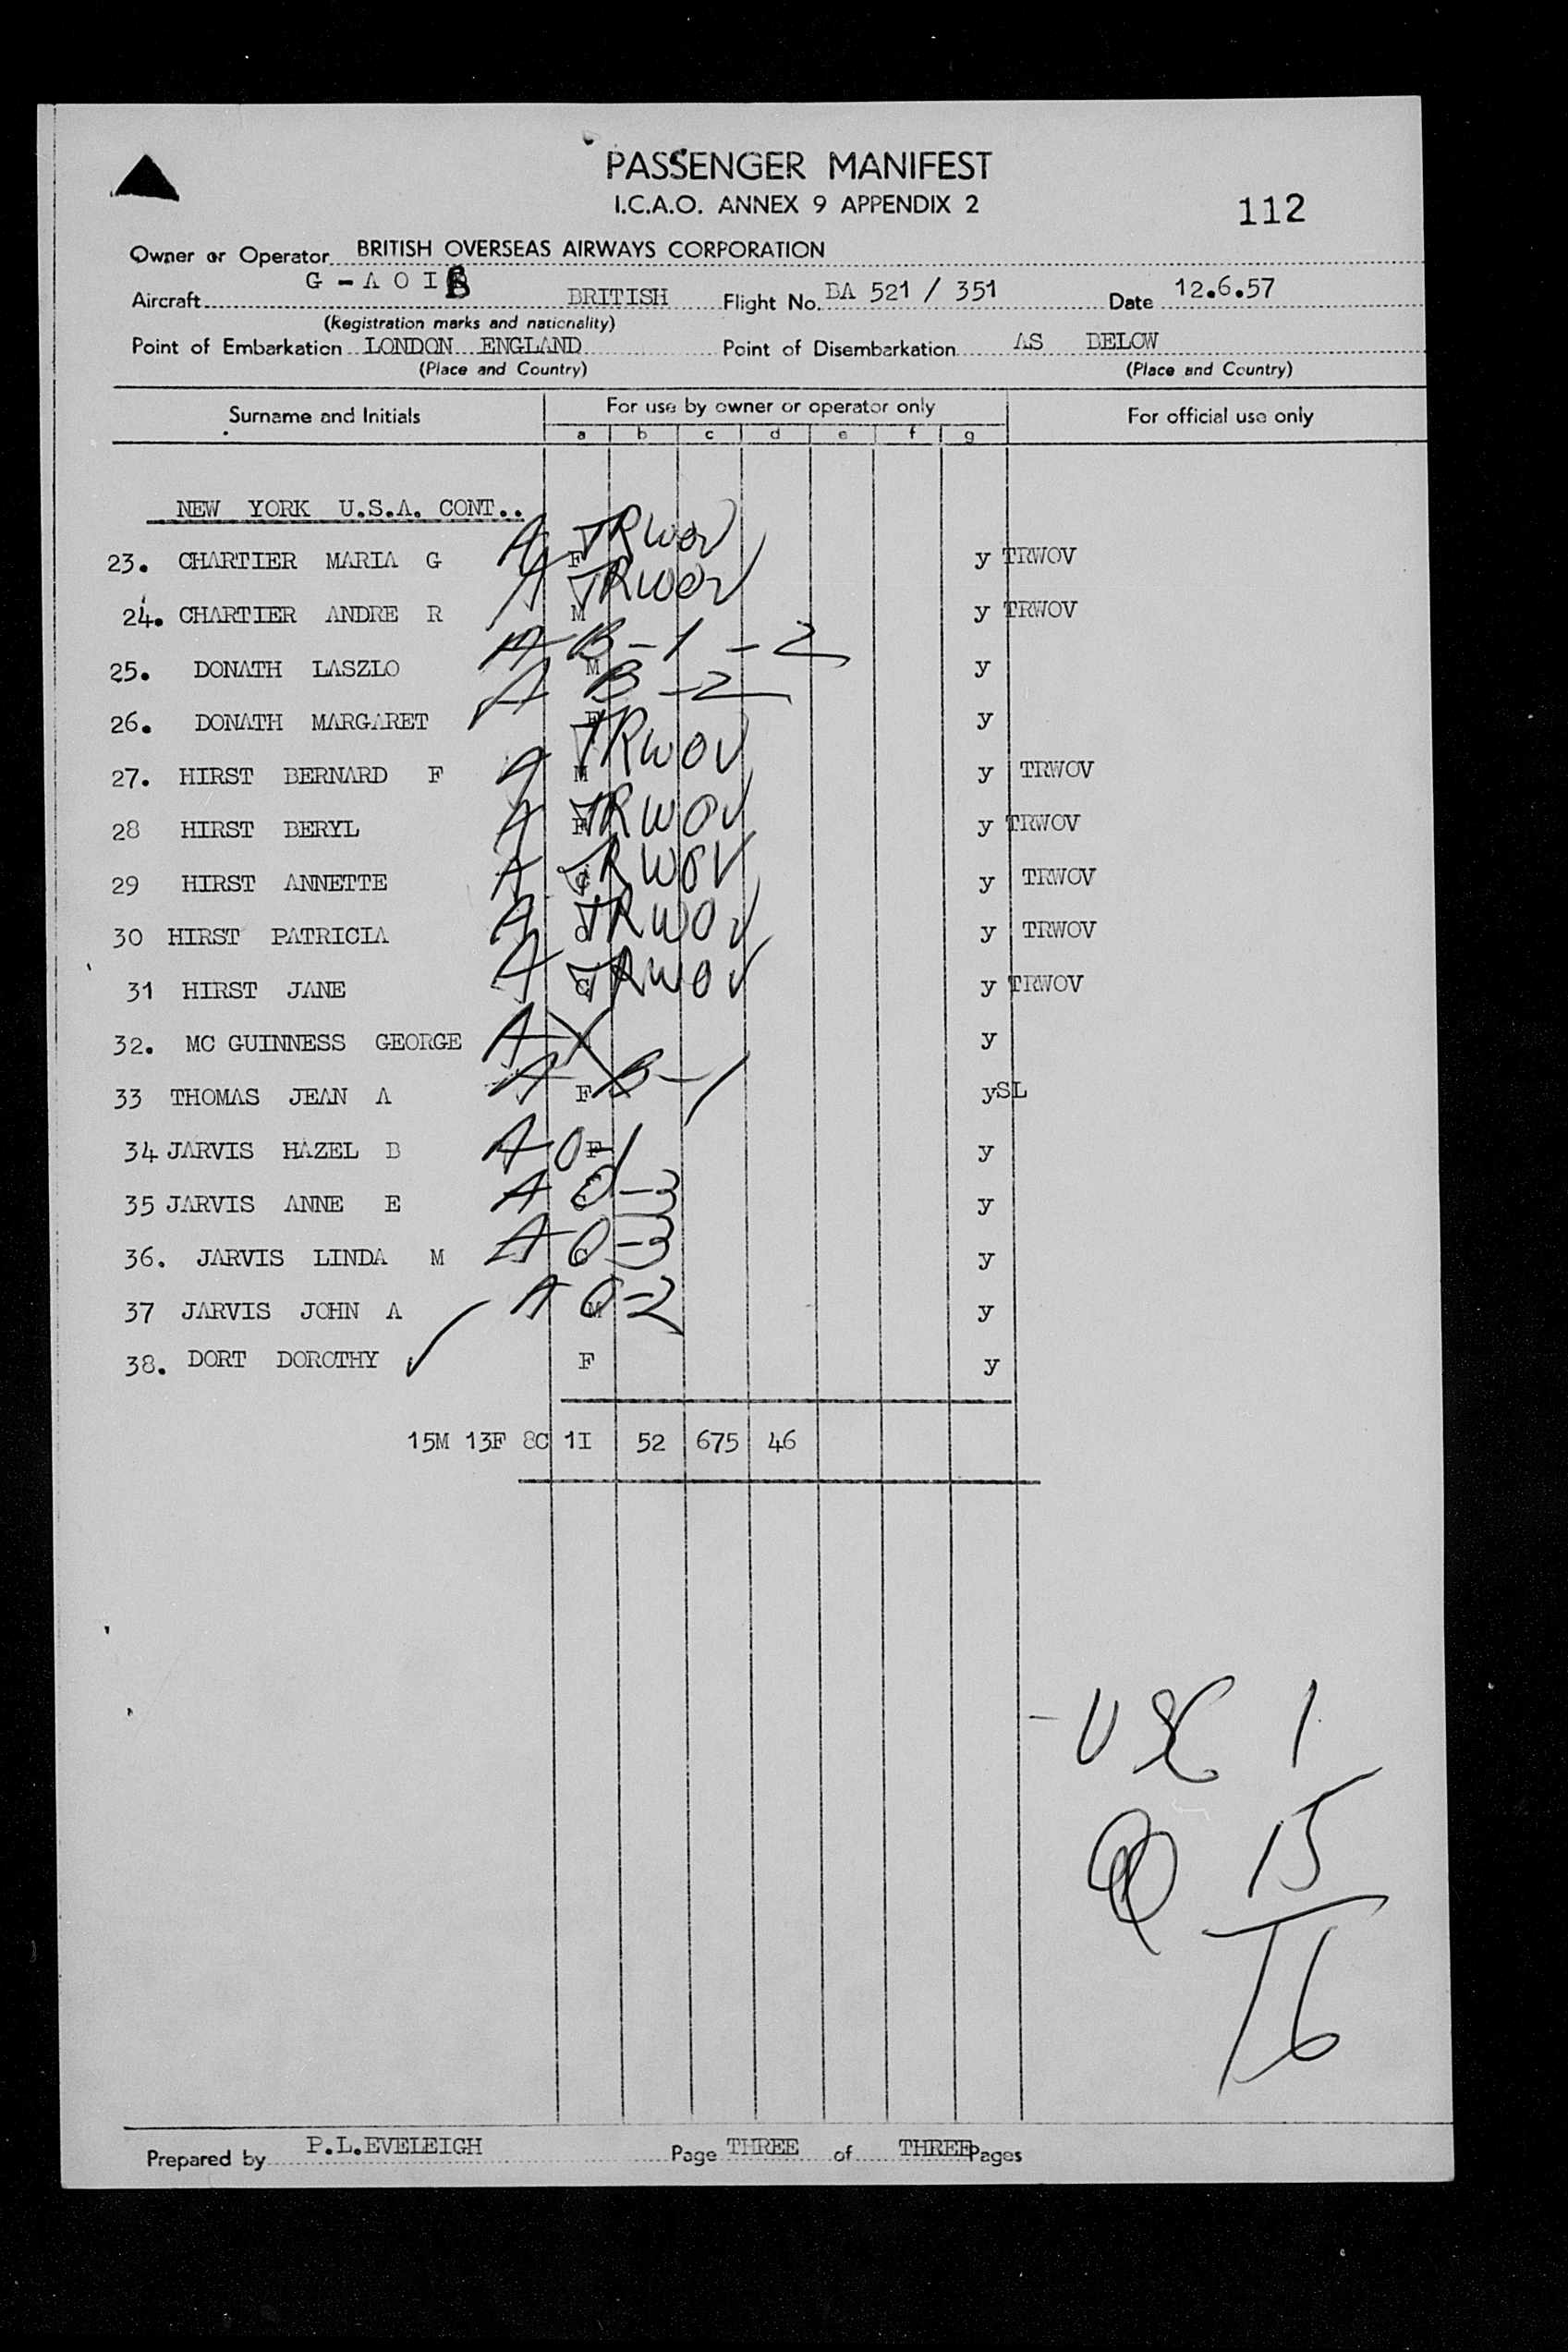 PASSENGER MANIFEST
I.C.A.O. ANNEX 9 APPENDIX 2
112
Owner or Operator BRITISH OVERSEAS AIRWAYS CORPORATION
Aircraft G - A O I B BRITISH Flight No. BA 521 / 351 Date 12.6.57
(Registration marks and nationality)
Point of Embarkation LONDON ENGLAND Point of Disembarkation AS BELOW
(Place and Country) (Place and Country)
Surname and Initials For use by owner or operator only For official use only
a b c d e f g
NEW YORK U.S.A. CONT..
23. CHARTIER MARIA G A F TRWOV y TRWOV
24. CHARTIER ANDRE R A M TRWOV y TRWOV
25. DONATH LASZLO A M B-1-2 y
26. DONATH MARGARET A F B-2 y
27. HIRST BERNARD F A M TRWOV y TRWOV
28 HIRST BERYL A F TRWOV y TRWOV
29 HIRST ANNETTE A C TRWOV y TRWOV
30 HIRST PATRICIA A C TRWOV y TRWOV
31 HIRST JANE A C TRWOV y TRWOV
32. MC GUINNESS GEORGE A M y
33 THOMAS JEAN A A F B-1 y SL
34 JARVIS HAZEL B A F O-1 y
35 JARVIS ANNE E A C O-3 y
36. JARVIS LINDA M A C O-3 y
37 JARVIS JOHN A A M O-2 y
38. DORT DOROTHY ✓ F y
15M 13F 8C 1I 52 675 46
- USC 1
15
16
Prepared by P.L.EVELEIGH Page THREE of THREE Pages